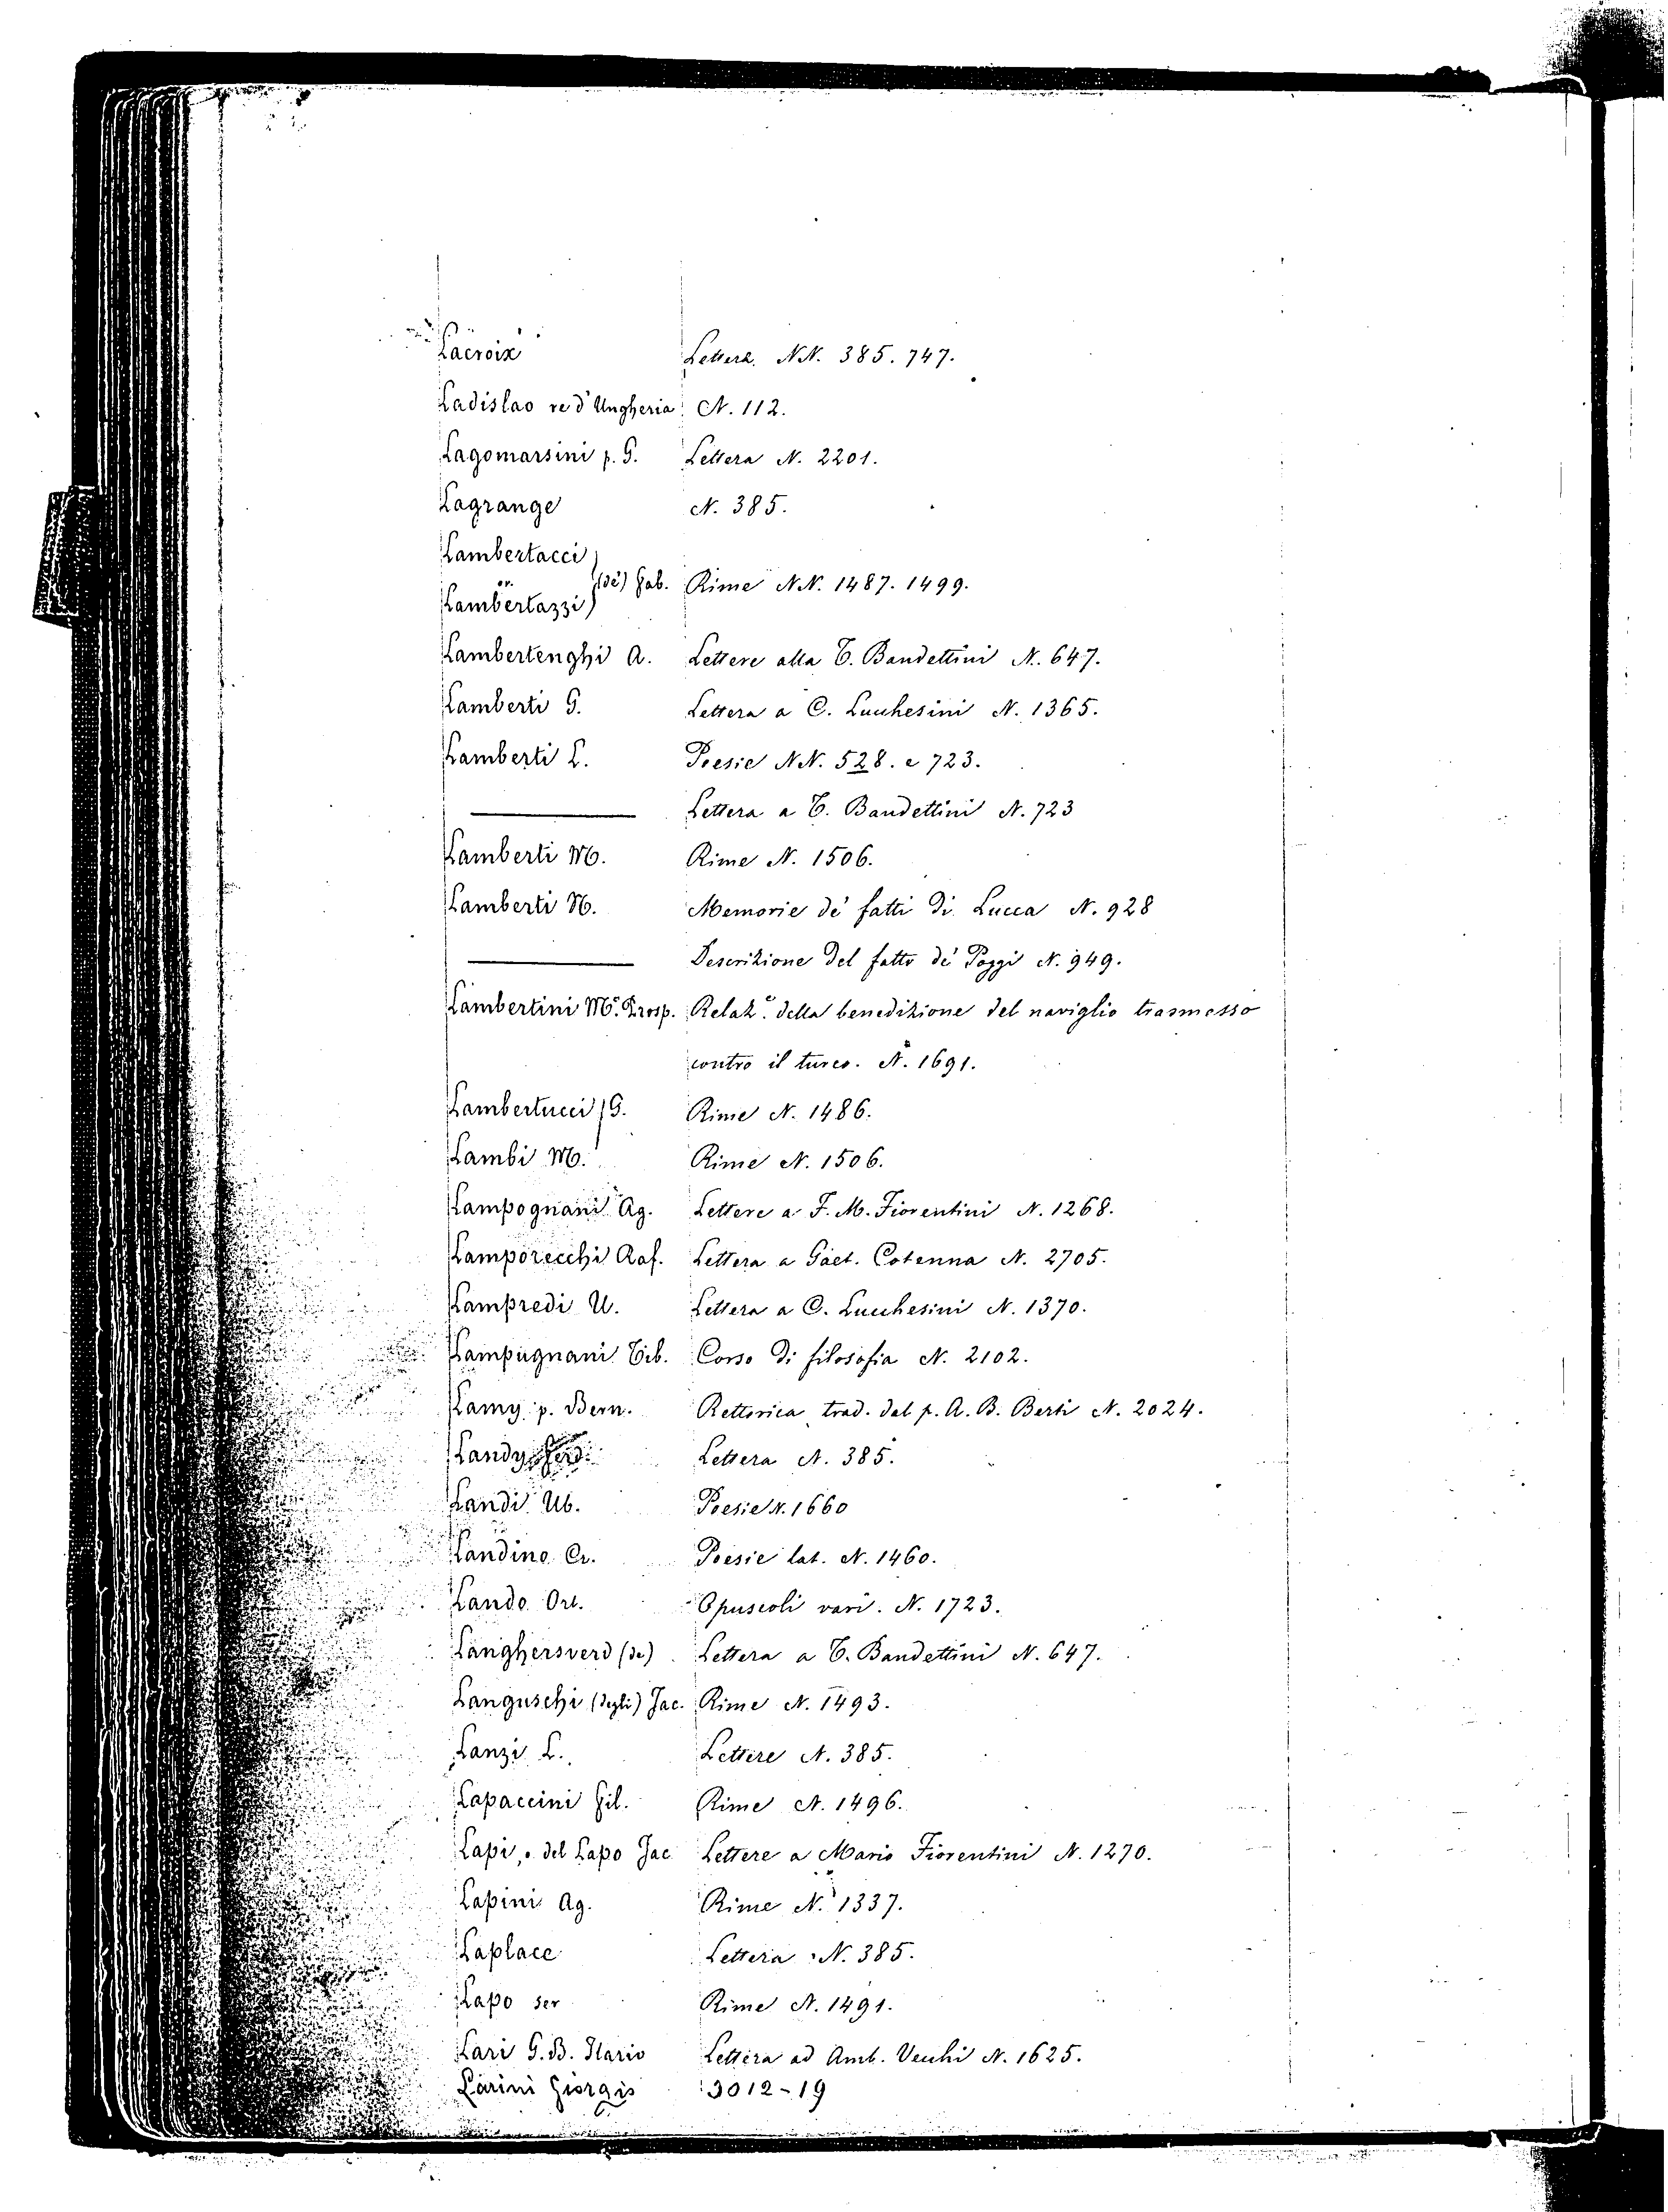 Lacroix Lettera. NN. 385. 747.
Ladislao re d'Ungheria N. 112.
Lagomarsini p. G. Lettera N. 2201.
Lagrange N. 385.
Lambertacci
or. (de') Gab. Rime NN. 1487. 1499.
Lambertazzi
Lambertenghi A. Lettere alla T. Bandettini N. 647.
Lamberti G. Lettera a C. Lucchesini N. 1365.
Lamberti L. Poesie NN. 528. e 723.
Lettera a T. Bandettini N. 723
Lamberti M. Rime N. 1506.
Lamberti N. Memorie de' fatti di Lucca N. 928
Descrizione del fatto de' Poggi N. 949.
Lambertini Mr. Prosp. Relaz.e della benedizione del naviglio trasmesso
contro il turco. N. 1691.
Lambertucci G. Rime N. 1486.
Lambi M. Rime N. 1506.
Lampognani Ag. Lettere a F. M. Fiorentini N. 1268.
Lamporecchi Raf. Lettera a Gaet. Cotenna N. 2705.
Lampredi U. Lettera a C. Lucchesini N. 1370.
Lampugnani Tib. Corso di filosofia N. 2102.
Lamy p. Bern. Rettorica trad. dal p. A. B. Berti N. 2024.
Landy Lettera N. 385.
Landi Ub. Poesie N. 1660
Landino Cr. Poesie lat. N. 1460.
Lando Ort. Opuscoli vari. N. 1723.
Langhersverd (de) Lettera a T. Bandettini N. 647.
Languschi (degli) Jac. Rime N. 1493.
Lanzi L. Lettere N. 385.
Lapaccini Fil. Rime N. 1496.
Lapi, o del Lapo Jac Lettere a Mario Fiorentini N. 1270.
Lapini Ag. Rime N. 1337.
Laplace Lettera N. 385.
Lapo ser Rime N. 1491.
Lari G. B. Ilario Lettera ad Amb. Vecchi N. 1625.
Larini Giorgio 3012-19